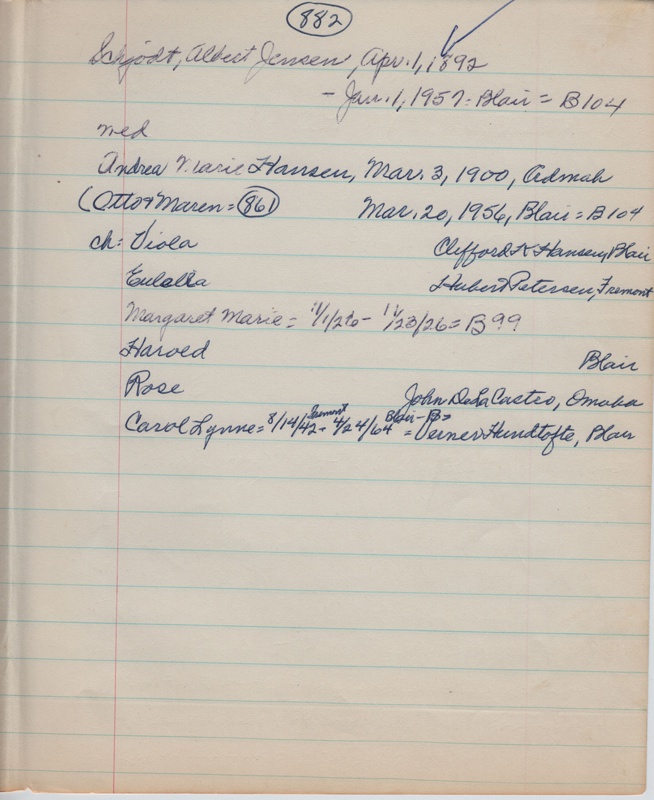 882
Schjodt, Albert Jensen, Apr. 1, 1892
- Jan. 1, 1957 = Blair = B104
med
Andrea Marie Hansen, Mar. 3, 1900, Admah
(Otto & Maren = 861 Mar. 20, 1956, Blair = B104
ch: Viola Clifford K Hansen, Blair
Eulalla Hubert Petersen, Fremont
Margaret Marie = 11/23/26 = B99
Harold Blair
Rose John DeLaCastro, Omaha
Fremont Blair - B=
Carol Lynne = 8/14/42 - 4/24/64 = Verner Hundtofte, Blair